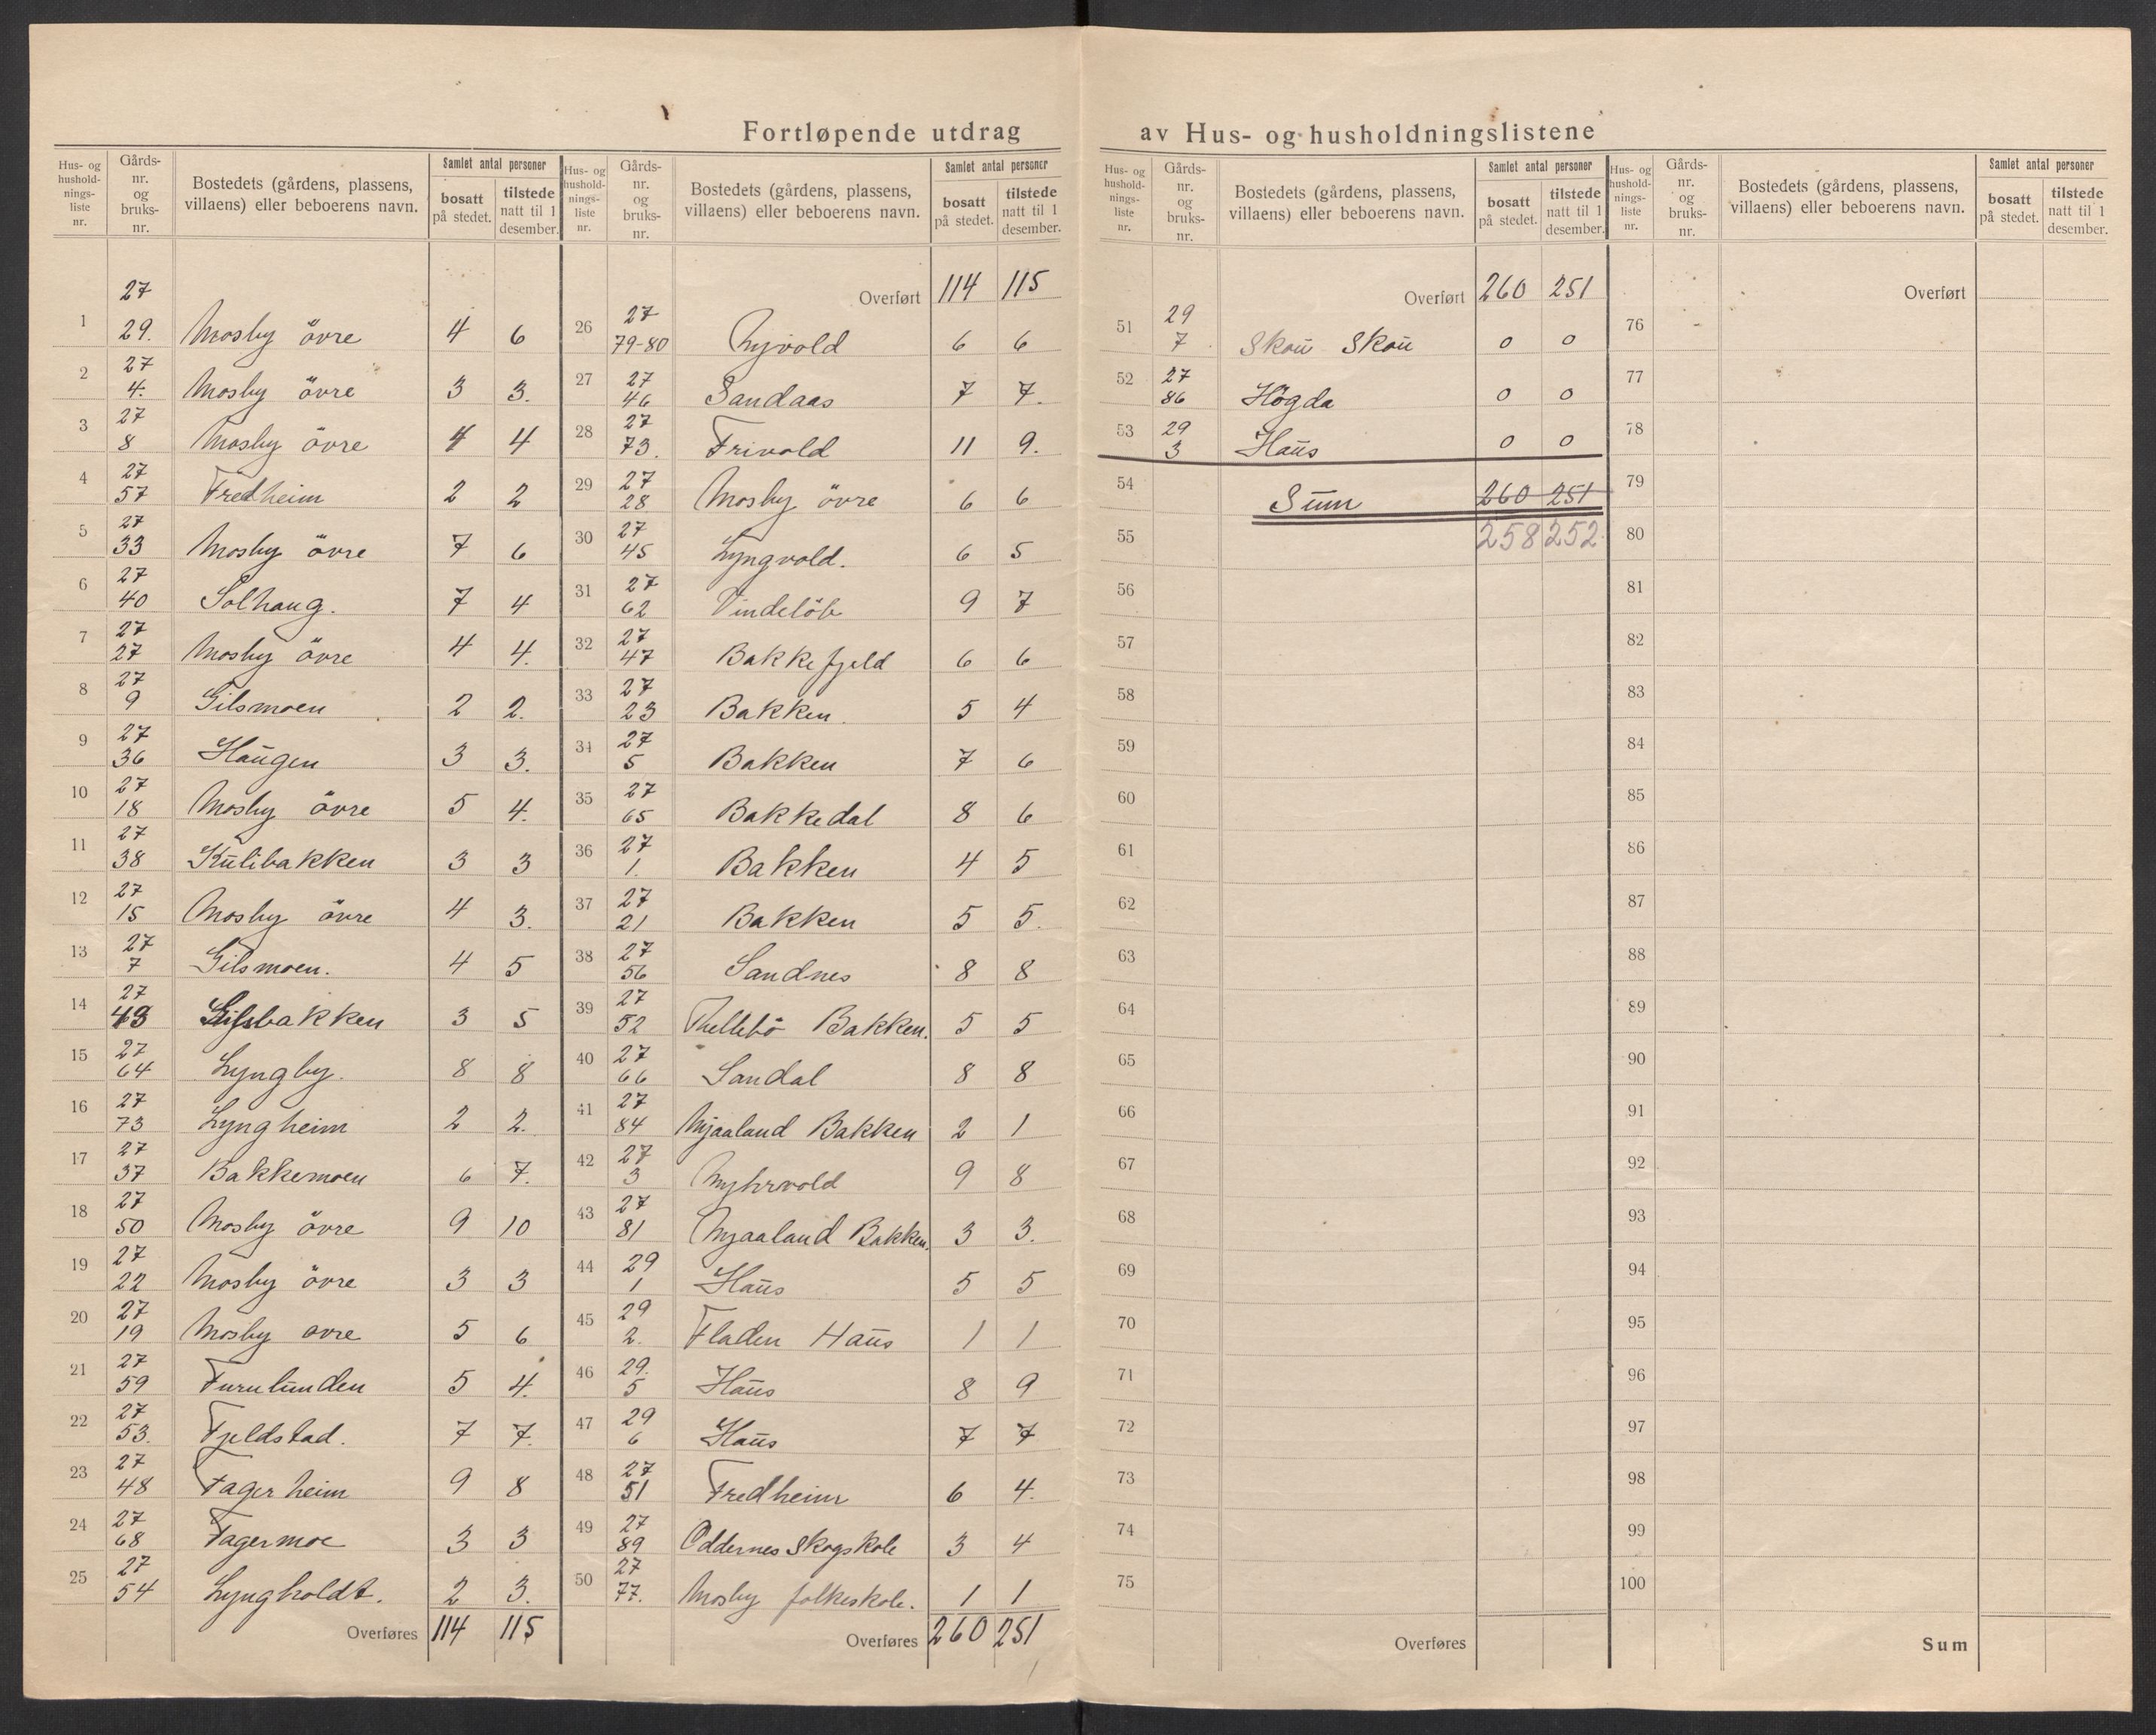 Fortløpende utdrag av Hus- og husholdningslistene
Hus- og hushold-nings-liste nr. Gårds-nr. og bruks-nr. Bostedets (gårdens, plassens, villaens) eller beboerens navn. Samlet antal personer bosatt på stedet. tilstede natt til 1 desember.
1 27 29. Mosby övre 4 6
2 27 4. Mosby övre 3 3.
3 27 8 Mosby övre 4 4
4 27 57 Fredheim 2 2
5 27 33 Mosby övre 7 6
6 27 40 Solhaug. 7 4
7 27 27 Mosby övre 4 4.
8 27 9 Gilsmoen 2 2.
9 27 36 Haugen 3 3.
10 27 18 Mosby övre 5 4.
11 27 38 Kulibakken 3 3
12 27 15 Mosby övre 4 3.
13 27 7 Gilsmoen. 4 5
14 27 43 Gilsbakken 3 5
15 27 64 Lyngby. 8 8
16 27 73 Lyngheim 2 2.
17 27 37 Bakkemoen 6 7.
18 27 50 Mosby övre 9 10
19 27 22 Mosby övre 3 3
20 27 19 Mosby ovre 5 6
21 27 59 Furulunden 5 4.
22 27 53. Fjeldstad. 7 7.
23 27 48 Fagerheim 9 8
24 27 68 Fagermoe 3 3
25 27 54 Lyngholdt. 2 3.
Overføres 114 115
Hus- og hushold-nings-liste nr. Gårds-nr. og bruks-nr. Bostedets (gårdens, plassens, villaens) eller beboerens navn. Samlet antal personer bosatt på stedet. tilstede natt til 1 desember.
Overført 114 115
26 27 79-80 Nyvold 6 6
27 27 46 Sandaas 7 7.
28 27 73. Frivold 11 9.
29 27 28 Mosby övre 6 6
30 27 45 Lyngvold. 6 5
31 27 62 Vindelöb 9 7
32 27 47 Bakkefjeld 6 6
33 27 23 Bakken. 5 4
34 27 5 Bakken 7 6
35 27 65 Bakkedal 8 6
36 27 1. Bakken 4 5
37 27 21 Bakken 5 5.
38 27 56 Sandnes 8 8
39 27 52 Bakken. 5 5
40 27 66 Sandal 8 8
41 27 84 Mjaaland Bakken 2 1
42 27 3 Myhrvold 9 8
43 27 81 Mjaaland Bakken. 3 3.
44 29 1 Haus 5 5
45 29 2. Fladen Haus 1 1
46 29. 5 Haus 8 9
47 29 6 Haus 7 7
48 27 51 Fredheim 6 4.
49 27 89 Oddernes Skogskole 3 4
50 27 77. Mosby folkeskole. 1 1
Overføres 260 251
Hus- og hushold-nings-liste nr. Gårds-nr. og bruks-nr. Bostedets (gårdens, plassens, villaens) eller beboerens navn. Samlet antal personer bosatt på stedet. tilstede natt til 1 desember.
Overført 260 251
51 29 7 Skau Skau 0 0
52 27 86 Högda 0 0
53 29 3 Haus 0 0
54 Sum 260 251
55 258 252
56
57
58
59
60
61
62
63
64
65
66
67
68
69
70
71
72
73
74
75
Overføres
Hus- og hushold-nings-liste nr. Gårds-nr. og bruks-nr. Bostedets (gårdens, plassens, villaens) eller beboerens navn. Samlet antal personer bosatt på stedet. tilstede natt til 1 desember.
Overført
76
77
78
79
80
81
82
83
84
85
86
87
88
89
90
91
92
93
94
95
96
97
98
99
100
Sum